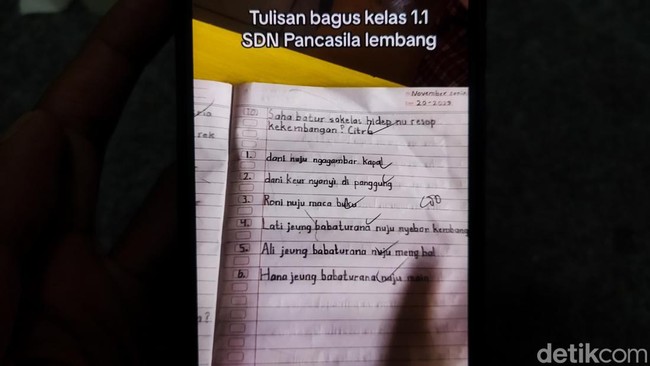 Tulisan bagus kelas 1.1
SDN Pancasila lembang
November
20-2023
Saha batur sakelas hidep nu resep
kekembangan? Citra
1. dani nuju ngagambar kapal
2. dani keur nyanyi di panggung
3. Roni nuju maca buku
4. Lati jeung babaturana nuju nyebor kembang
5. Ali jeung babaturana nuju meng bal
6. Hana jeung babaturana nuju
detikcom